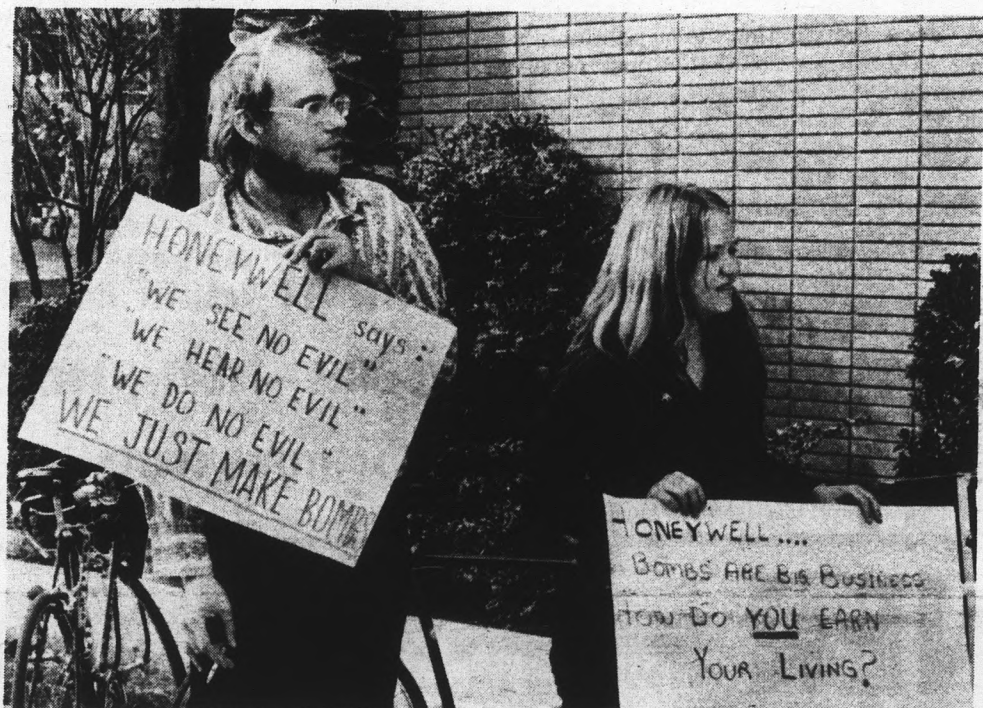 HONEYWELL says:
"WE SEE NO EVIL"
"WE HEAR NO EVIL"
"WE DO NO EVIL"
WE JUST MAKE BOMBS
HONEYWELL....
BOMBS ARE BIG BUSINESS
HOW DO YOU EARN
YOUR LIVING?